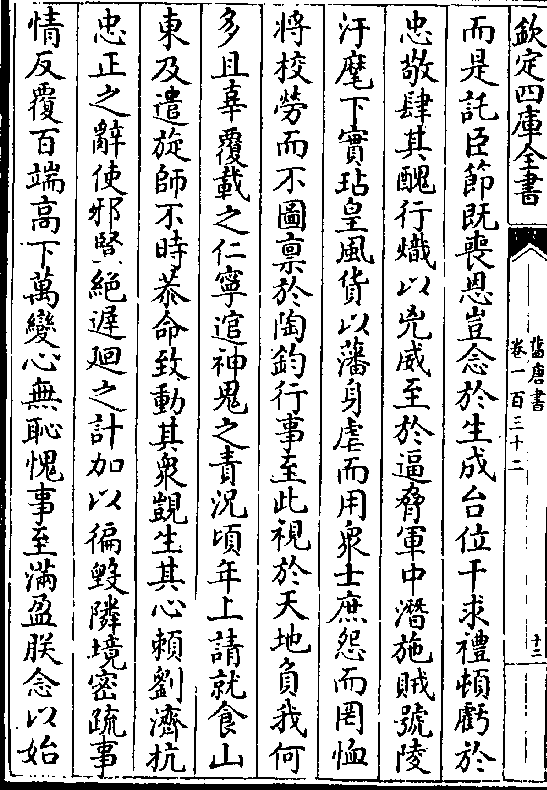 欽定四庫全書
舊唐書
卷一百三十二
十二
而是託臣節既喪恩豈念於生成台位干求禮頓虧於
忠敬肆其醜行熾以兇威至於逼脅軍中潛施賊號陵
汙麾下實玷皇風貨以藩身虐而用衆士庶怨而罔恤
將校勞而不圖稟於陶鈞行事至此視於天地負我何
多且辜覆載之仁寧逭神鬼之責況頃年上請就食山
東及遣旋師不時恭命致動其衆覬生其心賴劉濟抗
忠正之辭使邪豎絕遲廻之計加以徧毀隣境密疏事
情反覆百端高下萬變心無恥愧事至滿盈朕念以始